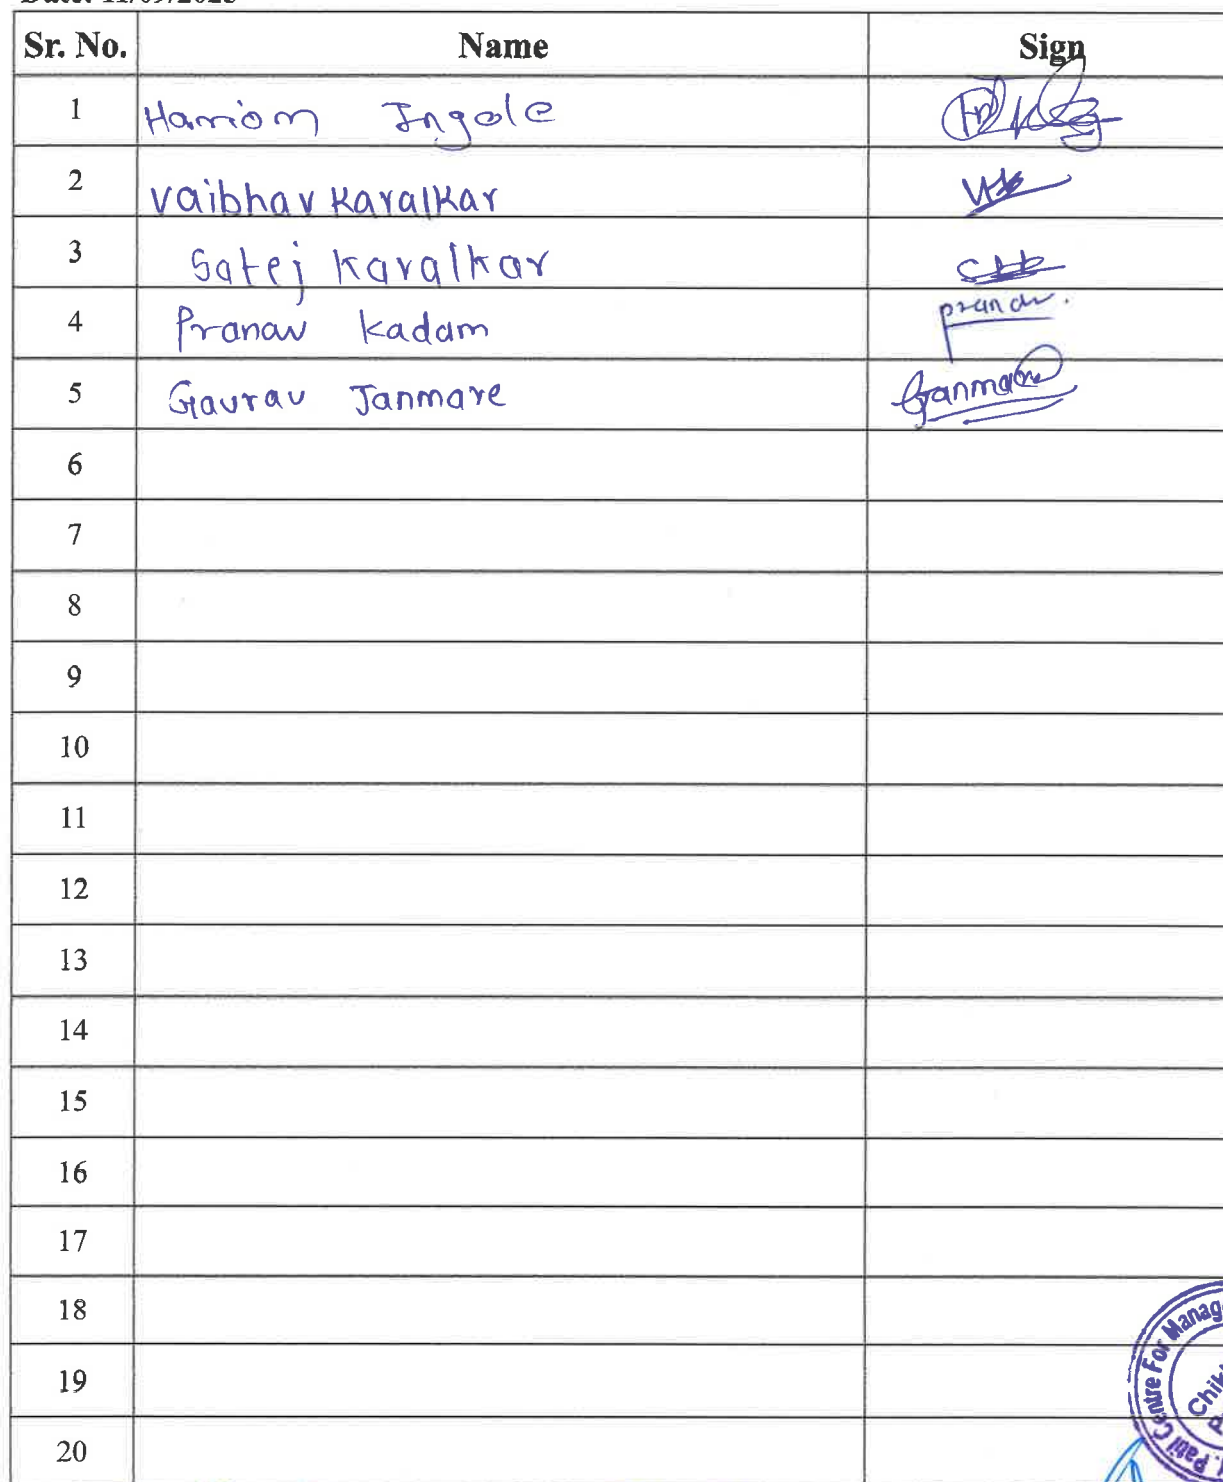 Date: 11/09/2023
Sr. No. Name Sign
1 Harriom Ingole
2 Vaibhav Karalkar
3 Satej Karalkar
4 Pranav Kadam pranav.
5 Gaurav Janmare Ganmare
6
7
8
9
10
11
12
13
14
15
16
17
18
19
20
Patil Centre For Manag